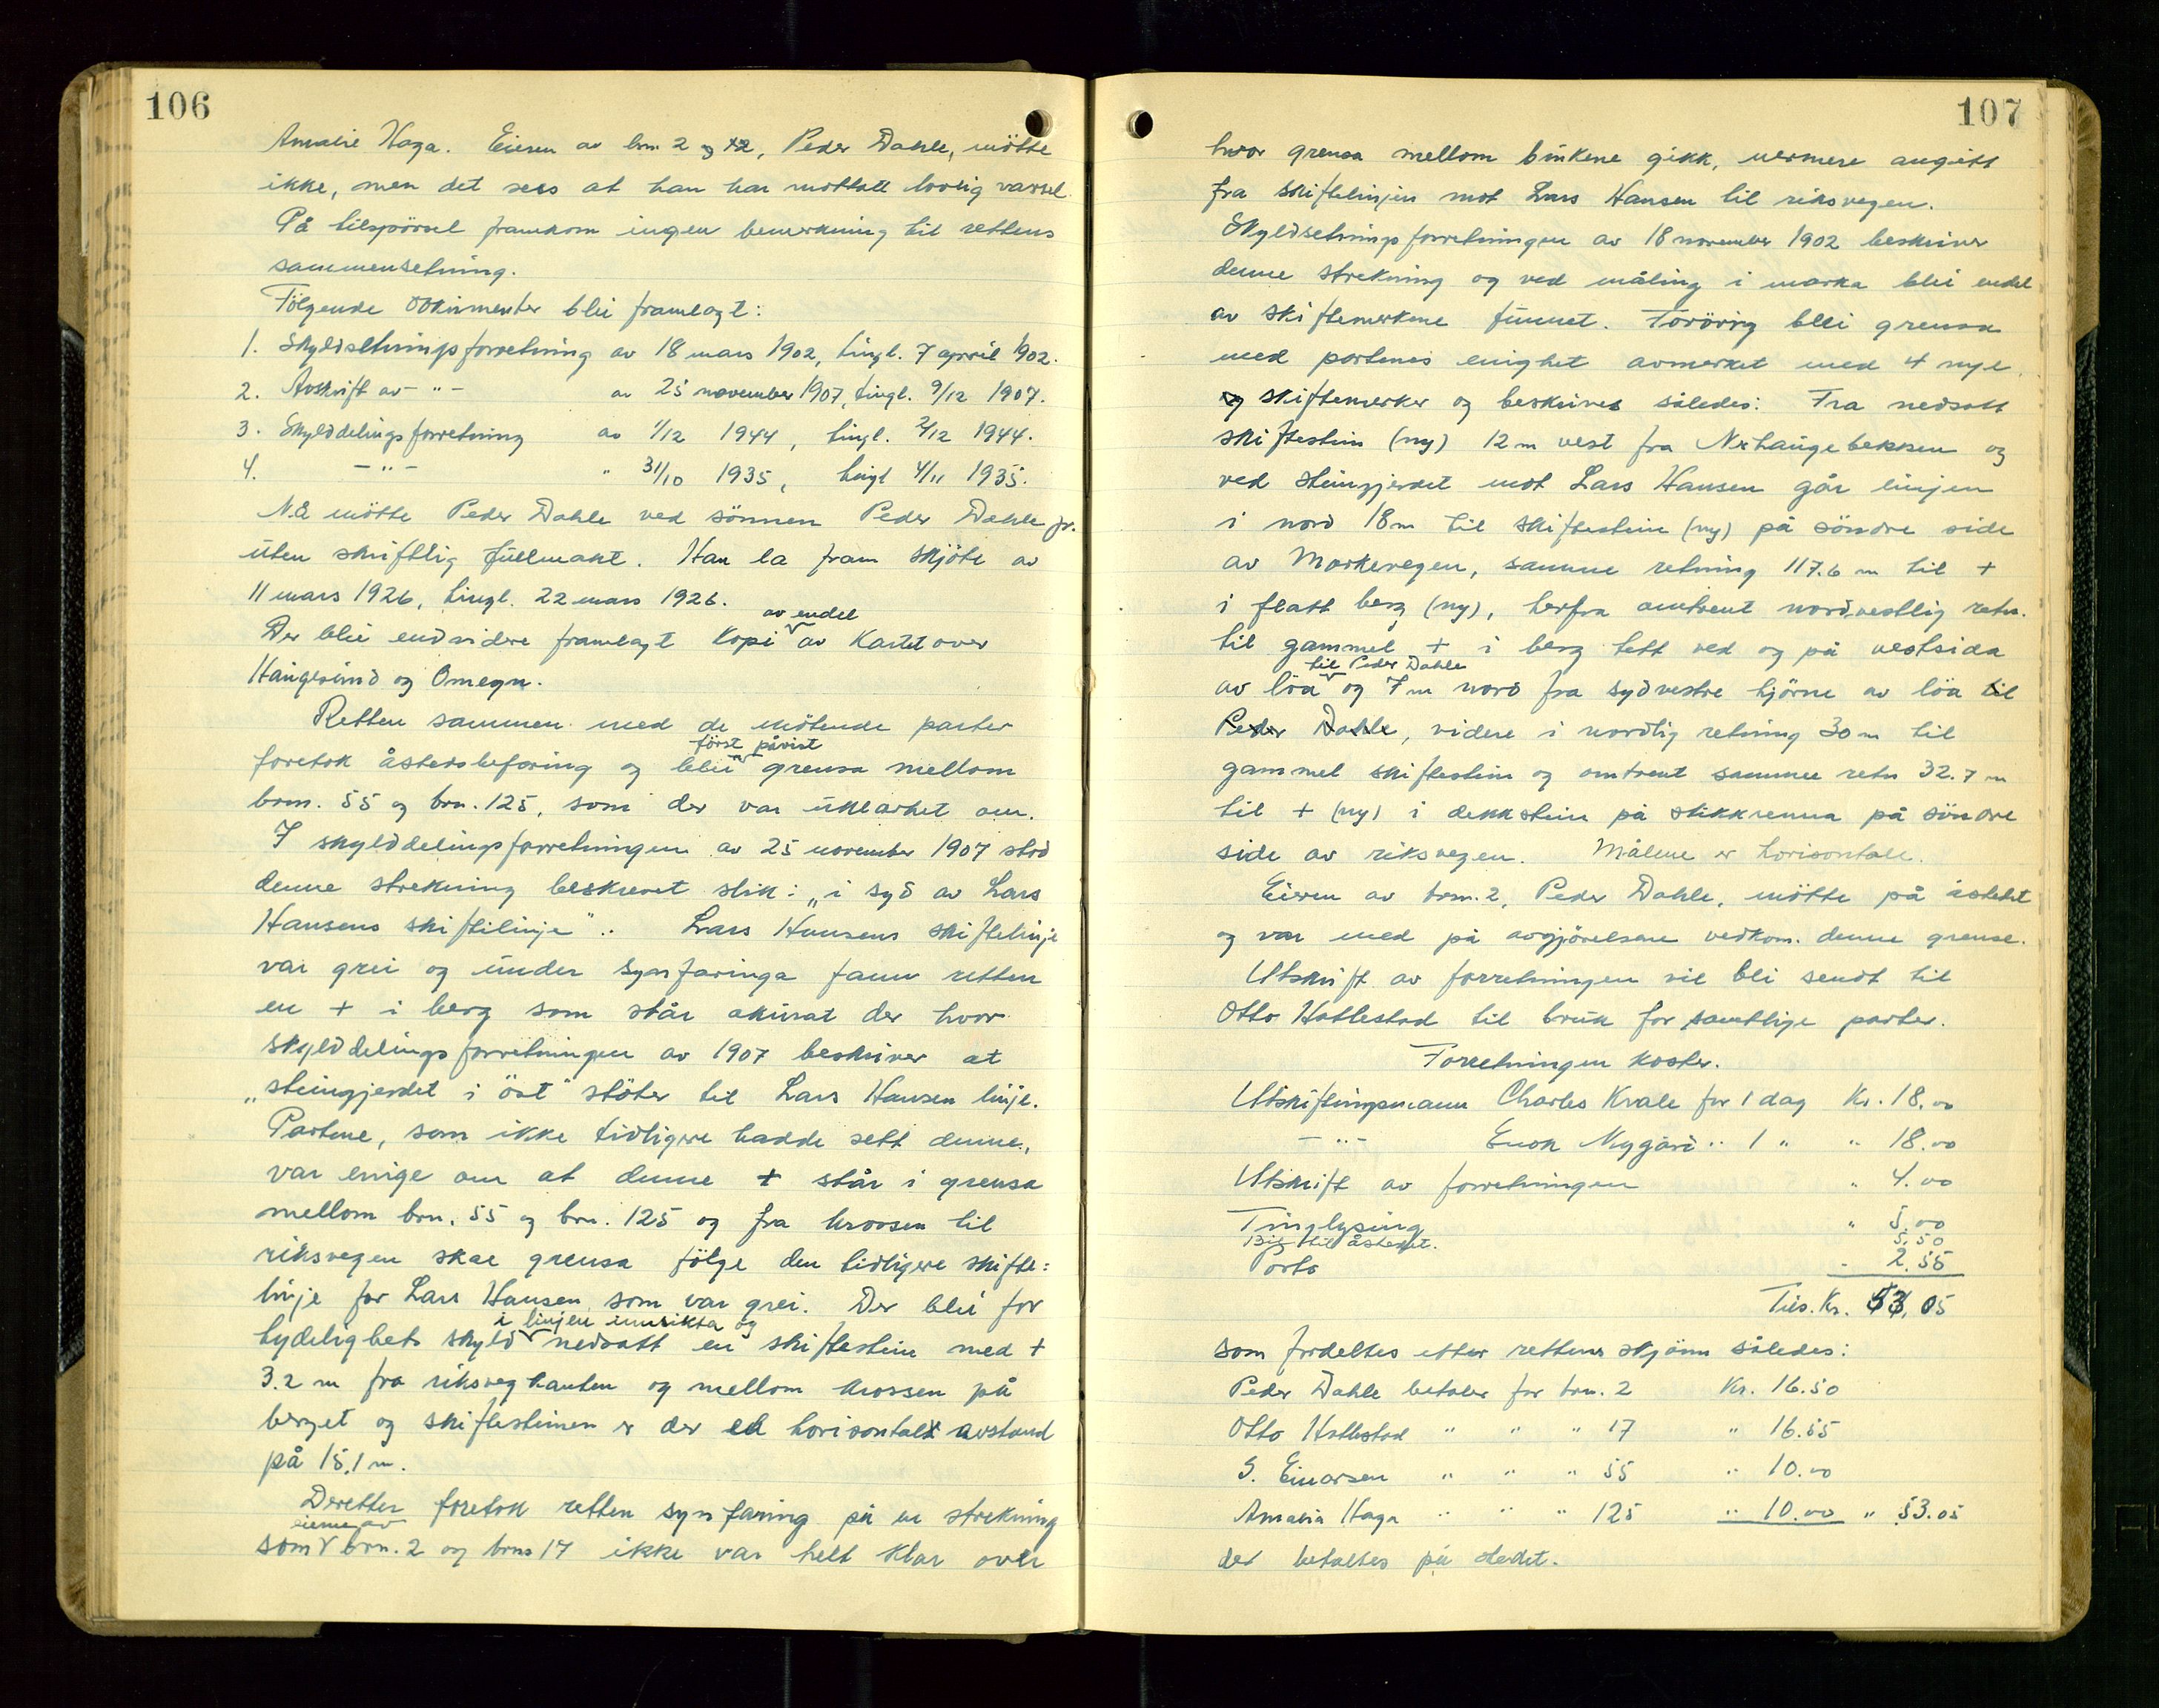 106
Amalie Haga. Eieren av brn 2 og 12, Peder Dahle, mötte
ikke, men det sees at han har mottatt lovlig varsel.
På tilspörsel framkom ingen bemerkning til rettens
sammensetning.
Fölgende dokumenter blei framlagt:
1. Skyldsetningsforretning av 18 mars 1902, tingl. 7 april 1902.
2. Avskrift av - " - av 25 november 1907, tingl. 9/12 1907.
3. Skylddelingsforretning av 1/12 1944, tingl. 2/12 1944.
4. - " - " 31/10 1935, tingl 4/11 1935.
Nå mötte Peder Dahle ved sönnen Peder Dahle jr.
uten skriftlig fullmakt. Han la fram skjöte av
11 mars 1926, tingl. 22 mars 1926.
av endel
Der blei endvidere framlagt kopi av Kartet over
Haugesund og Omegn.
Retten sammen med de mötende parter
först påvist
foretok åstedsbefaring og blei grensa mellom
brn. 55 og brn. 125, som der var uklarhet om.
I skylddelingsforretningen av 25 november 1907 stod
denne strekning beskrevet slik: „i syd av Lars
Hansens skiftilinje". Lars Hansens skiftelinje
var grei og under synfaringa fann retten
en + i berg som står akurat der hvor
skylddelingsforretningen av 1907 beskriver at
„steingjerdet i öst" stöter til Lars Hansen linje.
Partene, som ikke tidligere hadde sett denne,
var enige om at denne + står i grensa
mellom brn. 55 og brn. 125 og fra krossen til
riksvegen skal grensa fölge den tidligere skifte=
linje for Lars Hansen, som var grei. Der blei for
i linjen innsikta og
tydelighets skyld nedsatt en skiftestein med +
3.2 m fra riksvegkanten og mellom krossen på
berget og skiftesteinen er der en horisontal avstand
på 15,1 m.
Deretter foretok retten synfaring på en strekning
eierne av
som brn. 2 og brn 17 ikke var helt klar over
107
hvor grensa mellom brukene gikk, nermere angitt
fra skiftelinjen mot Lars Hansen til riksvegen.
Skyldsetningsforretningen av 18 november 1902 beskriver
denne strekning og ved måling i marka blei endel
av skiftemerkene funnet. Forövrig blei grensa
med partenes enighet avmerket med 4 nye
og skiftemerker og beskrives således: Fra nedsatt
skiftestein (ny) 12 m vest fra Nxhaugebekken og
ved steingjerdet mot Lars Hansen går linjen
i nord 18 m til skiftestein (ny) på söndre side
av Markevegen, samme retning 117.6 m til +
i flatt berg (ny), herfra omtrent nordvestlig retn.
til gammel + i berg tett ved og på vestsida
til Peder Dahle
av löa og 7 m nord fra sydvestre hjörne av löa til
Peder Dahle, videre i nordlig retning 30 m til
gammel skiftestein og omtrent samme retn 32.7 m
til + (ny) i dekkstein på stikkrenna på söndre
side av riksvegen. Målene er horisontale.
Eieren av brn. 2, Peder Dahle, mötte på åstedet
og var med på avgjörelsene vedkom. denne grense.
Utskrift av forretningen vil bli sendt til
Otto Hattestad til bruk for samtlige parter.
Forretningen koster.
Utskiftingsmann Charles Kvale for 1 dag Kr. 18.00
- " - Enok Nygård " 1 " " 18.00
Utskrift av forretningen " 4.00
Tinglysing " 5.00
Bil til åstedet. 5.50
Porto - 2.55
Tils. Kr. 53,05
som fordeltes etter rettens skjönn således:
Peder Dahle betaler for brn. 2 Kr. 16.50
Otto Hattestad " " " 17 " 16.55
S. Einarsen " " " 55 " 10.00
Amalia Haga " " " 125 " 10.00 " 53.05
det betaltes på stedet.